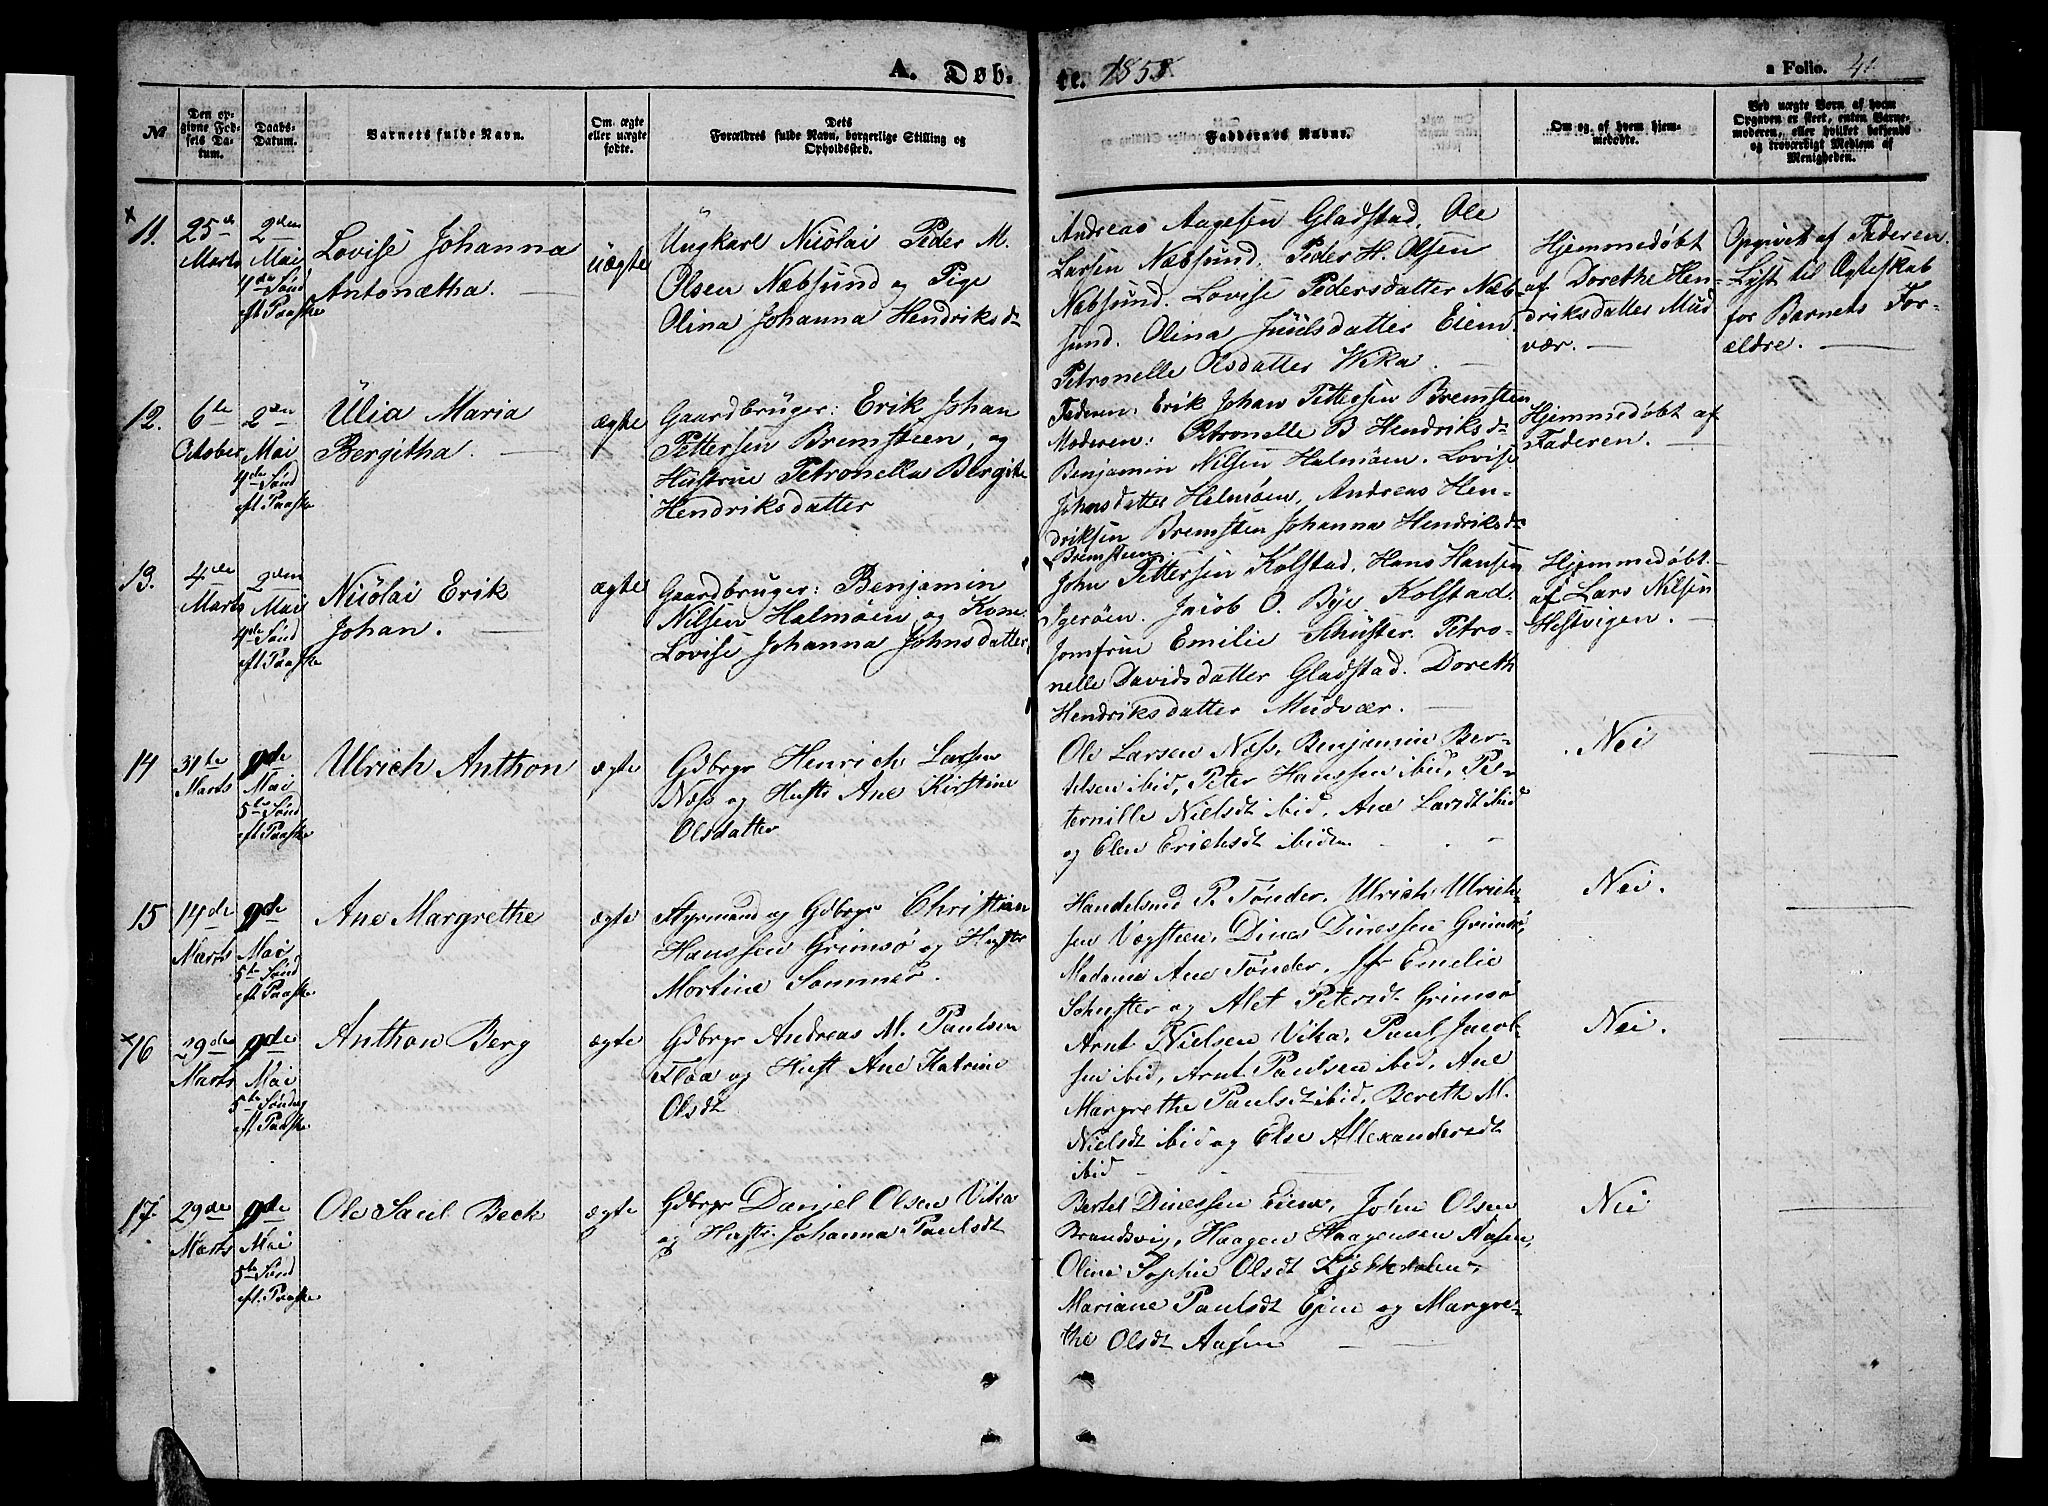 A. Døb-
te. 1858
a Folio. 41
№
Den op-
givne Fød-
sels Da-
tum.
Daabs-
Datum.
Barnets fulde Navn.
Om ægte
eller uægte
fødte.
Dets
Forældres fulde Navn, borgerlige Stilling og
Opholdssted.
Faddernes Navne.
Om og af hvem hjem-
medøbte.
Ved uægte Børn af hvem
Opgaven er skeet, enten Barne-
moderen, eller hvilket bekjendt
og troværdigt Medlem af
Menigheden.
x
11.
25de
Marts
2den
Mai
4de Sønd
eft Paaske
Lovise Johanna
Antonætha.
uægte
Ungkarl Nicolai Peder M.
Olsen Næbsund og Pige
Olina Johanna Hendriksd
Andreas Aagesen Gladstad. Ole
Larsen Næbsund. Peder H. Olsen
Næbsund. Lovise Pedersdatter Næb-
sund. Olina Juulsdatter Eiem
Petronelle Olsdatter Wika.
Hjemmedøbt
af Dorethe Hen-
driksdatter Mud
vær.
Opgivet af Faderen.
Lyst til Ægteskab
for Barnets For-
ældre.
12.
6te
October
2den
Mai
4de Sønd
eft. Paaske
Ulia Maria
Bergitha.
ægte
Gaardbruger: Erik Johan
Pettersen Bremsteen, og
Hustrue Petronella Bergite
Hendriksdatter
Faderen: Erik Johan Pettersen Bremsten
Moderen: Petronelle B Hendriksd
Benjamin Nilsen Halmøen. Lovise
Johnsdatter Helmøen, Andreas Hen-
driksen Bremsten Johanna Hendriksd
Bremsteen.
Hjemmedøbt af
Faderen.
13.
4de
Marts
2den
Mai
4de Sønd
eft Paaske
Nicolai Erik
Johan.
ægte
Gaardbruger: Benjamin
Nilsen Halmøen og Kone
Lovise Johanna Johnsdatter
John Pettersen Kolstad. Hans Hansen
Igerøen. Jacob O. Bye Kolstad.
Jomfrue Emilie Schuster. Petro-
nelle Davidsdatter Gladstad. Doreth
Hendriksdatter Mudvær.
Hjemmedøbt
af Lars Nilsen
Hestvigen.
14
31te
Marts
9de
Mai
5te Sønd
eft Paaske
Ulrich Anthon
ægte
Gdbrgr Henrich Larsen
Næss og Hustr Ane Kirstine
Olsdatter
Ole Larsen Næss, Benjamin Ber-
telsen ibid, Peter Hanssen ibid, Pe-
ternille Nielsdt ibid, Ane Larsdt ibid
og Elen Erichsdt ibidm
Nei
15
14de
Marts
9de
Mai
5te Sønd
eft Paaske
Ane Margrethe
ægte
Styrmand og Gdbrgr Christian
Hanssen Grimsø og Hustr
Martine Sommer.
Handelsmd P. Tønder, Ulrich Ulrich-
sen Vægsteen, Dines Dinessen Grimsø,
Madame Ane Tønder, Jfr Emelie
Schuster og Alet Petersdt Grimsø
Nei.
x
16
29de
Marts
9de
Mai
5te Søndag
eft Paaske
Anthon Berg
ægte
Gdbrgr Andreas M. Paulsen
Floa og Hust Ane Katrine
Olsdt
Arnt Nielsen Vika, Paul Jacob-
sen ibid, Arnt Paulsen ibid, Ane
Margrethe Paulsdt ibid, Bereth M.
Nielsdt ibid og Else Allexandersdt
ibid
Nei.
17.
29de
Marts
9de
Mai
5te Sønd
eft. Paaske
Ole Saul Beck
ægte
Gdbrgr Daniel Olsen Vika
og Hustr. Johanna Paulsdt
Bertel Dinessen Eiem, John Olsen
Brandsvig, Haagen Haagensen Aasen,
Oline Sophie Olsdt
Mariane Paulsdt Ejem og Margre-
the Olsdt Aasen
Nei